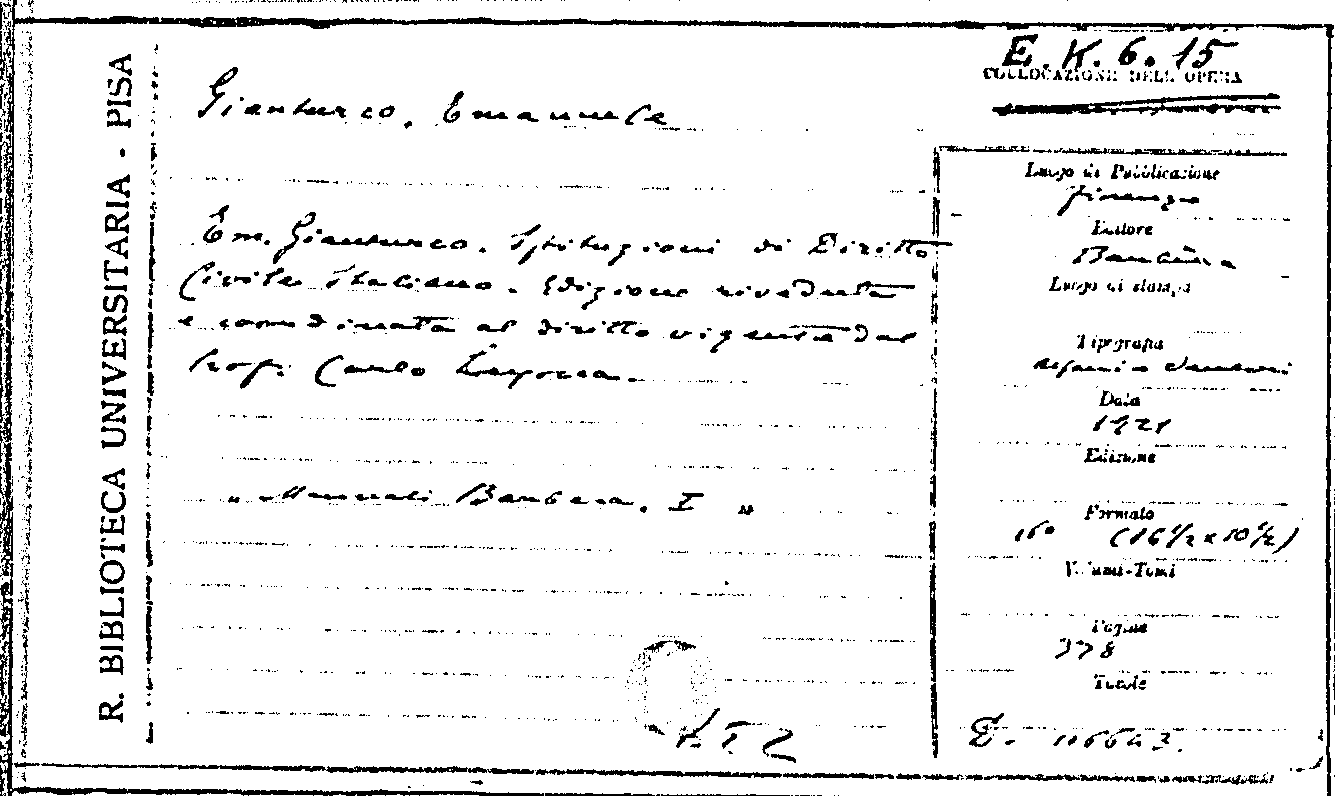 R. BIBLIOTECA UNIVERSITARIA - PISA
E. K. 6. 15
COLLOCAZIONE DELL' OPERA
Gianturco, Emanuele
Em. Gianturco. Istituzioni di Diritto
Civile Italiano. Edizione riveduta
e coordinata al diritto vigente dal
Prof. Carlo
„ Manuali Barbèra. I „
Luogo di Pubblicazione
Firenze
Editore
Barbèra
Luogo di stampa
Tipografia
Alfani e Venturi
Data
1921
Edizione
Formato
16° (16 1/2 x 10 1/2)
Volumi-Tomi
Pagine
378
Tavole